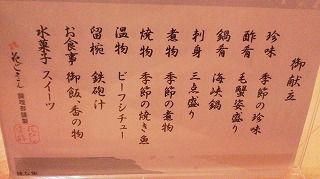 御献立
珍味 季節の珍味
酢肴 毛蟹姿盛り
鍋肴 海峡鍋
刺身 三点盛り
煮物 季節の煮物
焼物 季節の焼き魚
温物 ビーフシチュー
留椀 鉄砲汁
お食事 御飯、香の物
水菓子 スイーツ
調理部謹製